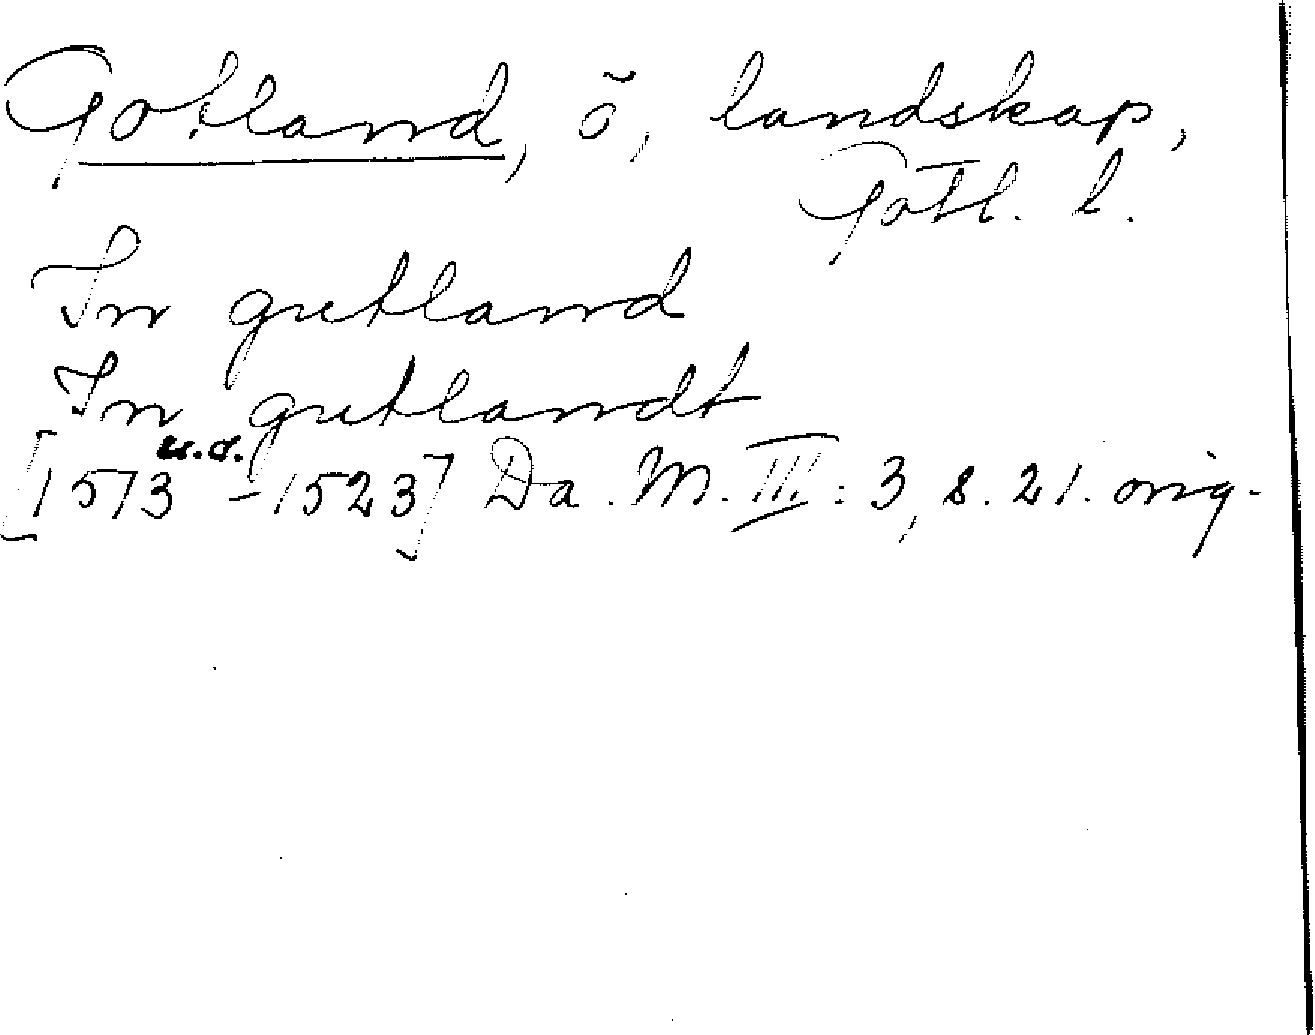 Gotland, ö, landskap,
Gotl. l.
In gutland
In gutlandt
[1513 u.å. -1523] Da. M. III: 3, s. 21. orig.